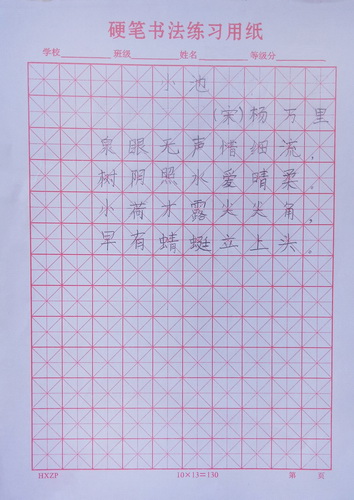 硬笔书法练习用纸
学校 班级 姓名 等级分
小池
(宋)杨万里
泉眼无声惜细流,
树阴照水爱晴柔。
小荷才露尖尖角,
早有蜻蜓立上头。
HXZP 10×13=130 第 页